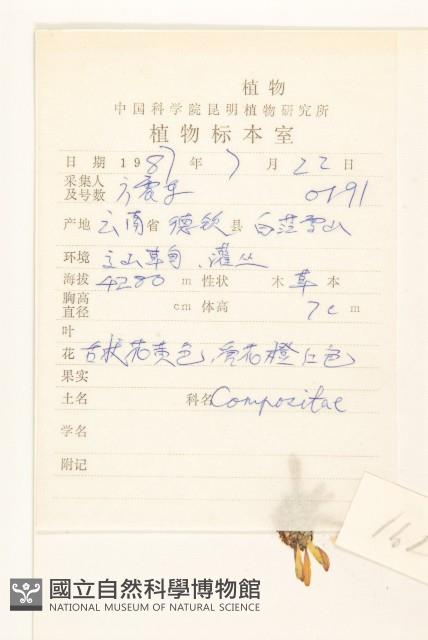 植物
中国科学院昆明植物研究所
植物标本室
日期 1987年7月22日
采集人
及号数 0191
产地 云南省 德钦县 白茫雪山
环境 高山草甸、灌丛
海拔 4280 m 性状 木 草 本
胸高
直径 cm 体高 7c m
叶
花 舌状花黄色,管花橙红色
果实
土名 科名 Compositae
学名
附记
國立自然科學博物館
NATIONAL MUSEUM OF NATURAL SCIENCE